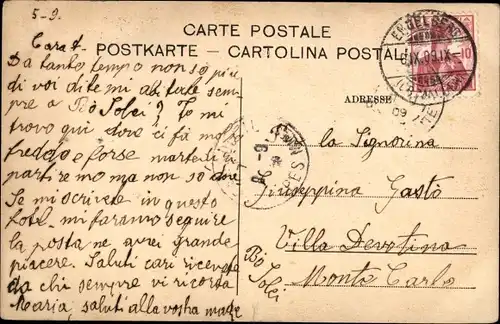 5-9.
CARTE POSTALE
POSTKARTE – CARTOLINA POSTALE
ENGELBERG
6.IX.09.IX
10
ADRESSE
Cara
Da tanto tempo non so più
di voi ditemi abitate sem
pre a Bo Solei? Io mi
trovo qui dove ci fa mo
freddo e forse martedì
partiremo ma non so dove
Se mi scrivete in questo
hotel mi faranno seguire
la posta ne avrei grande
piacere. Saluti cari ricevete
da chi sempre vi ricorda
Maria, saluti alla vostra madre
la Signorina
Giuseppina Gasto
Villa Devotina
Bo Solei
Monte Carlo